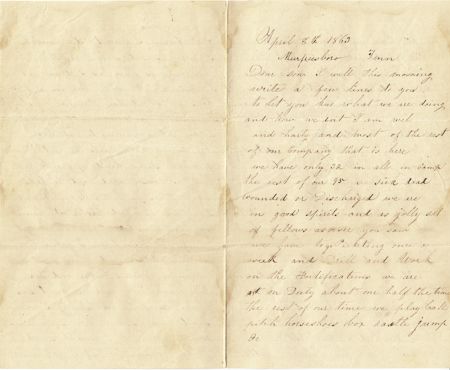 April 8th 1863
Murfresboro Tenn
Dear son I will this morning
write a few lines to you
to let you know what we are doing
and how we are I am well
and harty and most of the rest
of our Company that is here
we have only 32 in all in camp
the rest of our 95 is sick dead
wounded or Discharged we are
in good spirits and as jolly set
of fellows as ever you saw
we have once a
week and Drill and Work
on the Fortifications we are
on Duty about one half the time
the rest of our time we play ball
pitch horseshoes box jump
&c